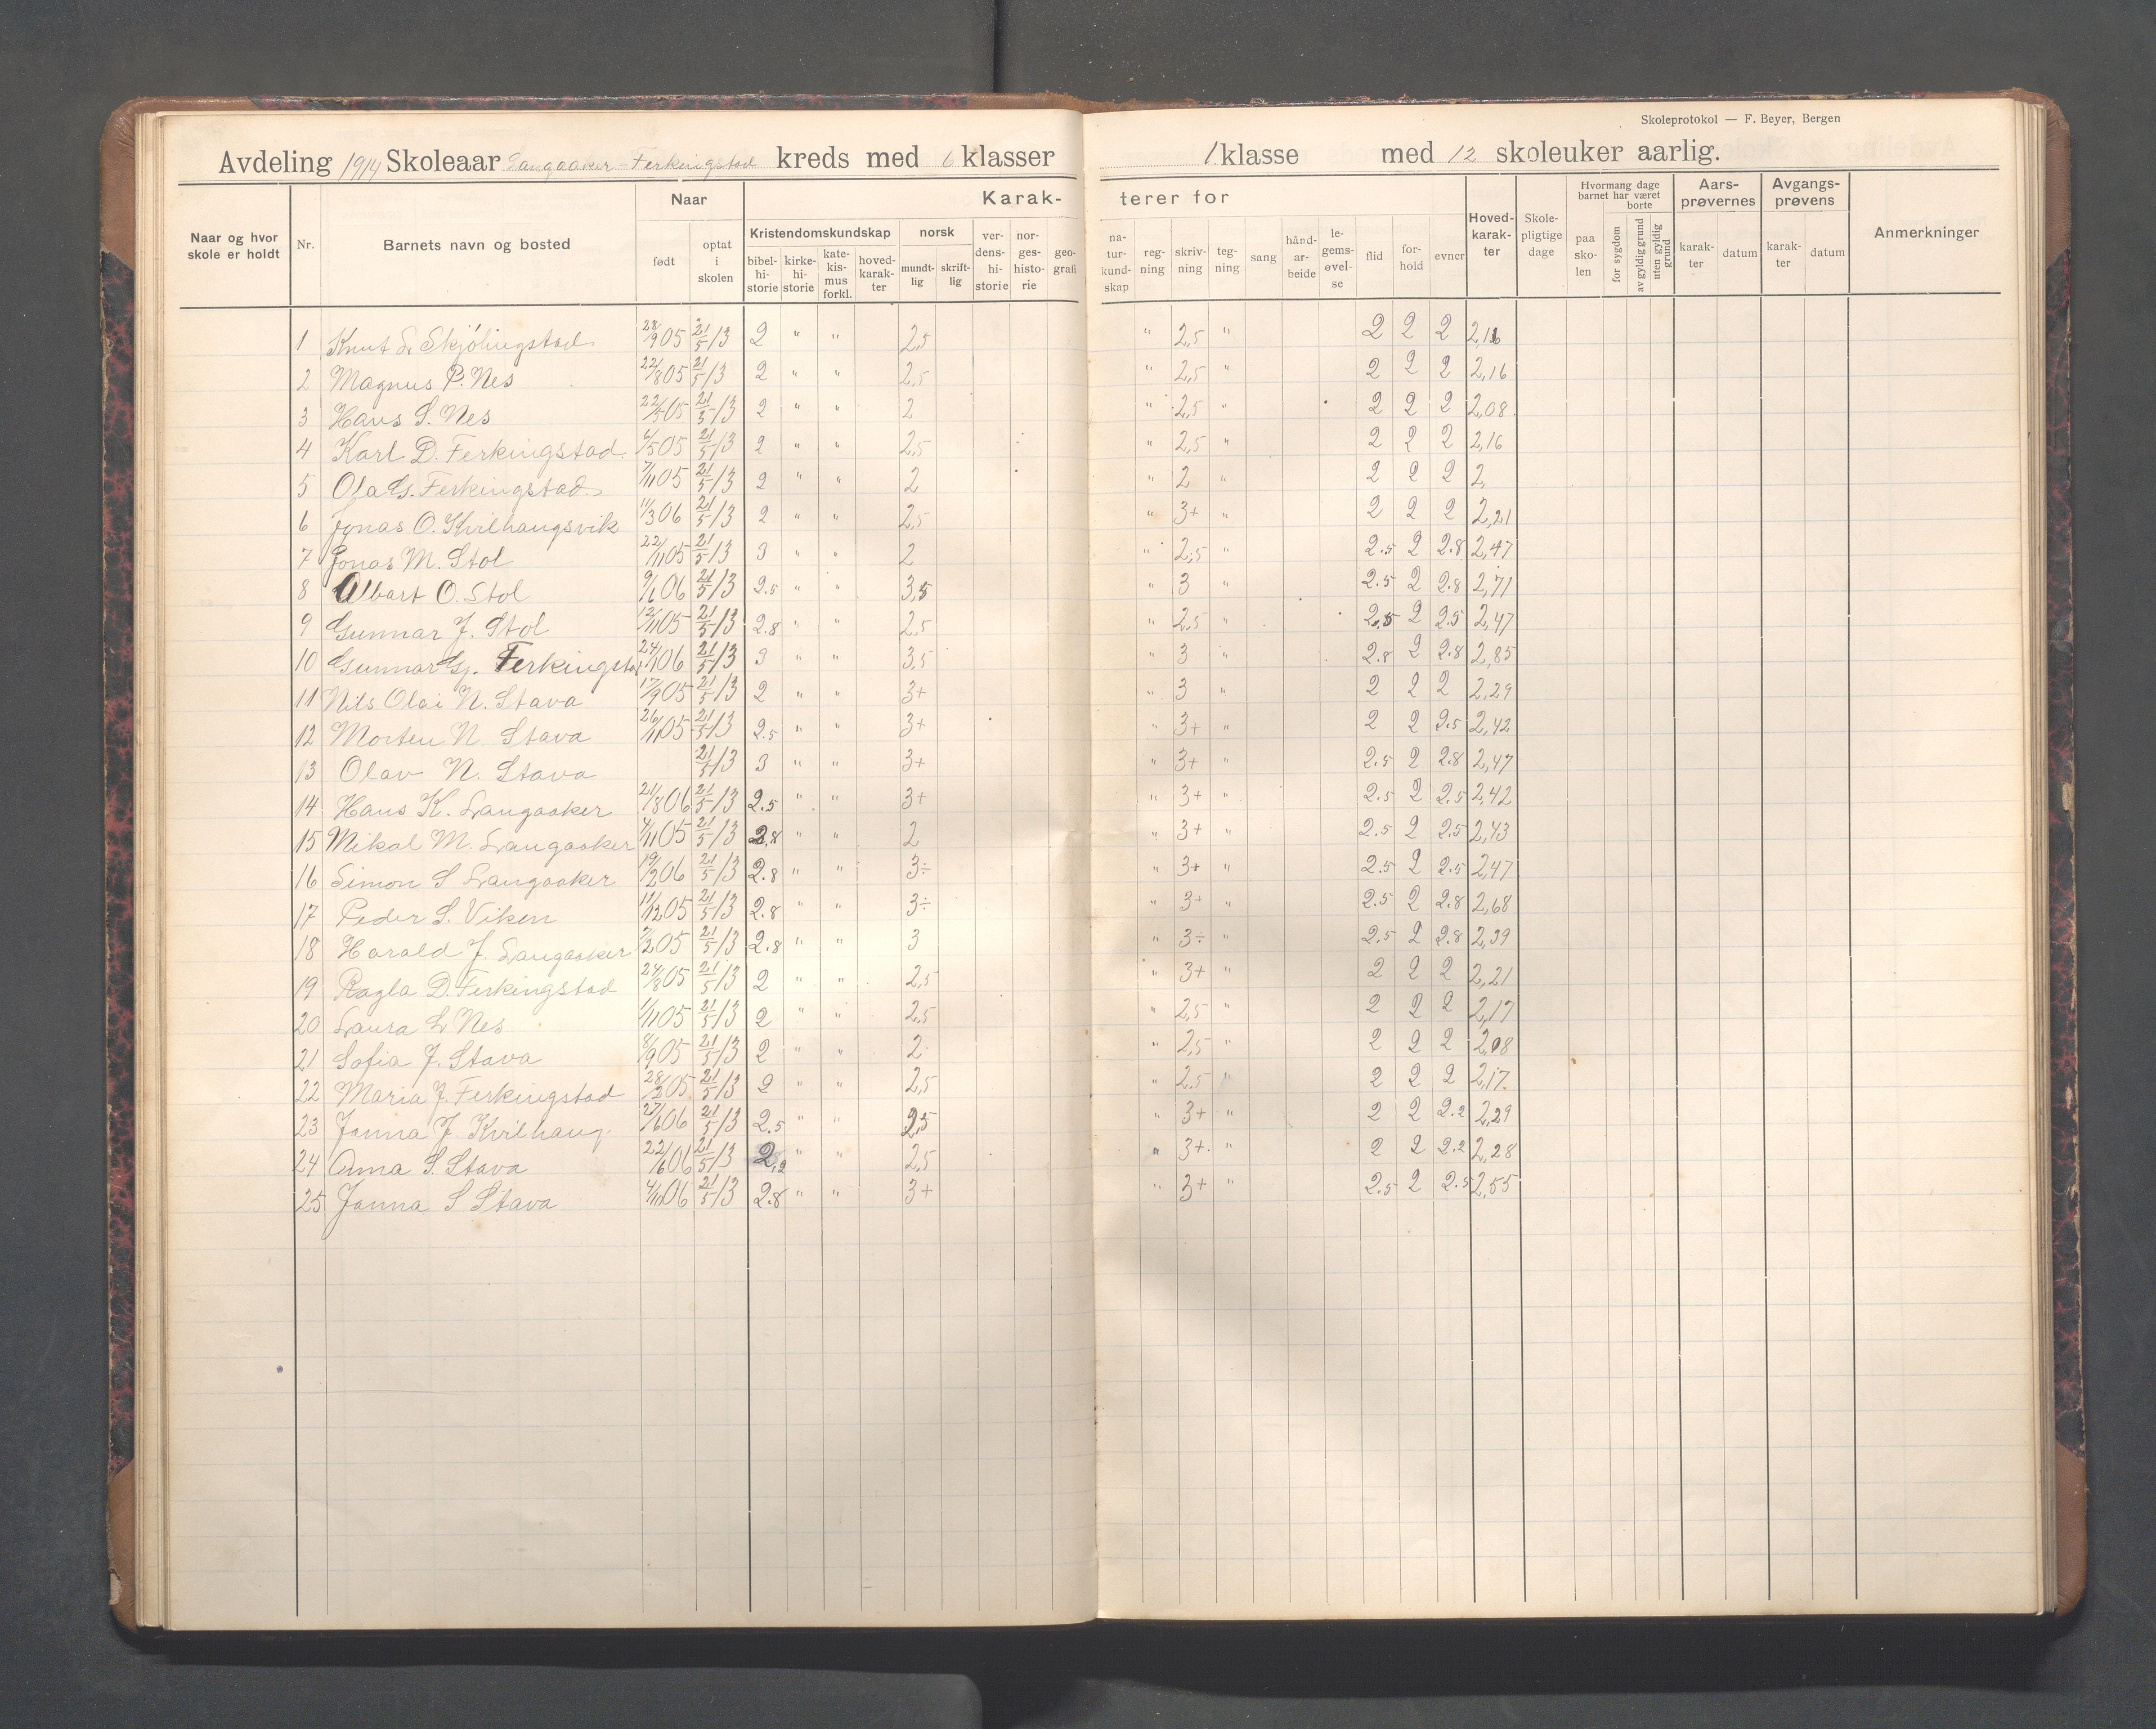 Skoleprotokol — F. Beyer, Bergen
Avdeling 1914 Skoleaar Langaaker-Ferkingstad kreds med 6 klasser 1 klasse med 12 skoleuker aarlig.
Naar og hvor skole er holdt | Nr. | Barnets navn og bosted | Naar | født | optat i skolen | Karakterer for | Kristendomskundskap | bibelhistorie | kirkehistorie | katekismus forkl. | hovedkarakter | norsk | mundtlig | skriftlig | verdenshistorie | norgeshistorie | geografi | naturkundskap | regning | skrivning | tegning | sang | håndarbeide | legemsøvelse | flid | forhold | evner | Hovedkarakter | Skolepligtige dage | Hvormang dage barnet har været | paa skolen | borte | for sygdom | av gyldig grund | uten gyldig grund | Aarsprøvernes | karakter | datum | Avgangsprøvens | karakter | datum | Anmerkninger
1 Knut L. Skjölingstad 28/9 05 21/5 13 2 " " 2,5 " 2,5 " 2 2 2 2,16
2 Magnus P. Nes 22/8 05 21/5 13 2 " " 2,5 " 2,5 " 2 2 2 2,16
3 Hans S. Nes 22/5 05 21/5 13 2 " " 2 " 2,5 " 2 2 2 2,08
4 Karl D. Ferkingstad 6/5 05 21/5 13 2 " " 2,5 " 2,5 " 2 2 2 2,16
5 Ola G. Ferkingstad 7/11 05 21/5 13 2 " " 2 " 2 " 2 2 2 2,
6 Jonas O. Kvilhaugsvik 11/3 06 21/5 13 2 " " 2,5 " 3+ " 2 2 2 2,21
7 Jonas M. Stol 22/11 05 21/5 13 3 " " 2 " 2,5 " 2.5 2 2.8 2,47
8 Albart O. Stol 9/6 06 21/5 13 2.5 " " 3,5 " 3 " 2.5 2 2.8 2,71
9 Gunnar J. Stol 12/11 05 21/5 13 2.8 " " 2,5 " 2,5 " 2,5 2 2.5 2,47
10 Gunnar Gj. Ferkingstad 24/1 06 21/5 13 3 " " 3,5 " 3 " 2.8 2 2.8 2,85
11 Nils Olai N. Stava 17/9 05 21/5 13 2 " " 3+ " 3 " 2 2 2 2,29
12 Morten N. Stava 26/11 05 21/5 13 2.5 " " 3+ " 3+ " 2 2 2.5 2,42
13 Olav N. Stava 21/5 13 3 " " 3+ " 3+ " 2.5 2 2.8 2,47
14 Hans K. Langaaker 21/8 06 21/5 13 2.5 " " 3+ " 3+ " 2.5 2 2.5 2,42
15 Mikal M. Langaaker 4/11 05 21/5 13 2.8 " " 2 " 3+ " 2.5 2 2.5 2,43
16 Simon S Langaaker 19/2 06 21/5 13 2.8 " " 3÷ " 3+ " 2.5 2 2.5 2,47
17 Peder S. Viken 11/12 05 21/5 13 2.8 " " 3÷ " 3+ " 2.5 2 2.8 2,68
18 Harald J. Langaaker 7/2 05 21/5 13 2.8 " " 3 " 3÷ " 2.5 2 2.8 2,39
19 Ragla D. Ferkingstad 24/8 05 21/5 13 2 " " 2,5 " 3+ " 2 2 2 2,21
20 Laura L Nes 1/11 05 21/5 13 2 " " 2,5 " 2,5 " 2 2 2 2,17
21 Sofia J. Stava 8/9 05 21/5 13 2 " " 2 " 2,5 " 2 2 2 2,08
22 Maria J. Ferkingstad 28/2 05 21/5 13 2 " " 2,5 " 2.5 " 2 2 2 2,17
23 Janna J. Kvilhaug 27/6 06 21/5 13 2.5 " " 2,5 " 3+ " 2 2 2.2 2,29
24 Anna S. Stava 22/6 06 21/5 13 2,2 " " 2,5 " 3+ " 2 2 2.2 2,28
25 Janna S Stava 4/11 06 21/5 13 2.8 " " 3+ " 3+ " 2.5 2 2.5 2,55